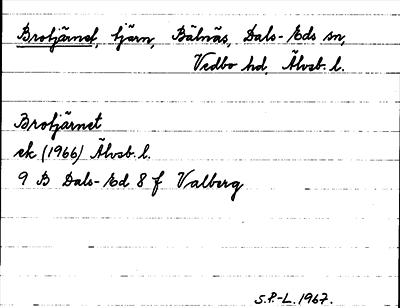 Brotjärnet, tjärn, Bälnäs, Dals-Eds sn,
Vedbo hd, Älvsb. l.
Brotjärnet
ek (1966) Älvsb. l.
9 B Dals-Ed 8 f Valberg
S.P.-L. 1967.